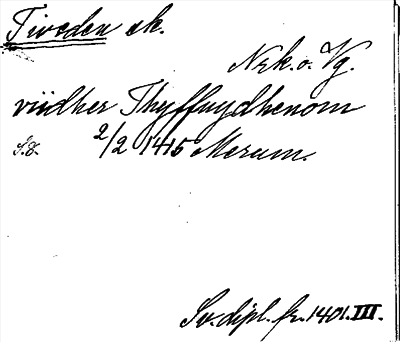 Tiveden sk.
Nrk. o. Vg.
viidher Thyffwydhenom
S.d. 2/2 1415 Merum.
Sv. dipl. fr. 1401. III.